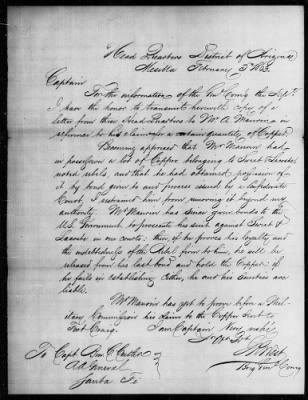 Head Quarters District of Arizona
Mesilla February 3d 1863.
Captain
For the information of the Genl Comdg the Dept
I have the honor to transmit herewith copy of a
letter from these Head Quarters to Mr A. Mannin in
reference to his claim for a certain quantity of Copper.
Becoming apprised that Mr Mannin had
in possession a lot of Copper belonging to Sweet & Lacoste
noted rebels, and that he had obtained possession of
it by bond given to and process issued by a Confederate
Court, I restrained him from moving it beyond my
authority. Mr Mannin has since given bonds to the
U.S. Government to prosecute his suit against Sweet &
Lacoste in our courts: then, if he proves his loyalty, and
the indebtedness of the Rebel firm to him, he will be
released from his last bond and holds the Copper: if
he fails in establishing either, he and his sureties are
liable.
Mr Mannin has yet to prove before a Mil-
itary Commission his claims to the Copper sent to
Fort Craig. I am Captain Very respy
Yr Obt Svt
J R West
Brig Genl Comdg
To Capt Ben C. Cutler
A A General
Santa Fe